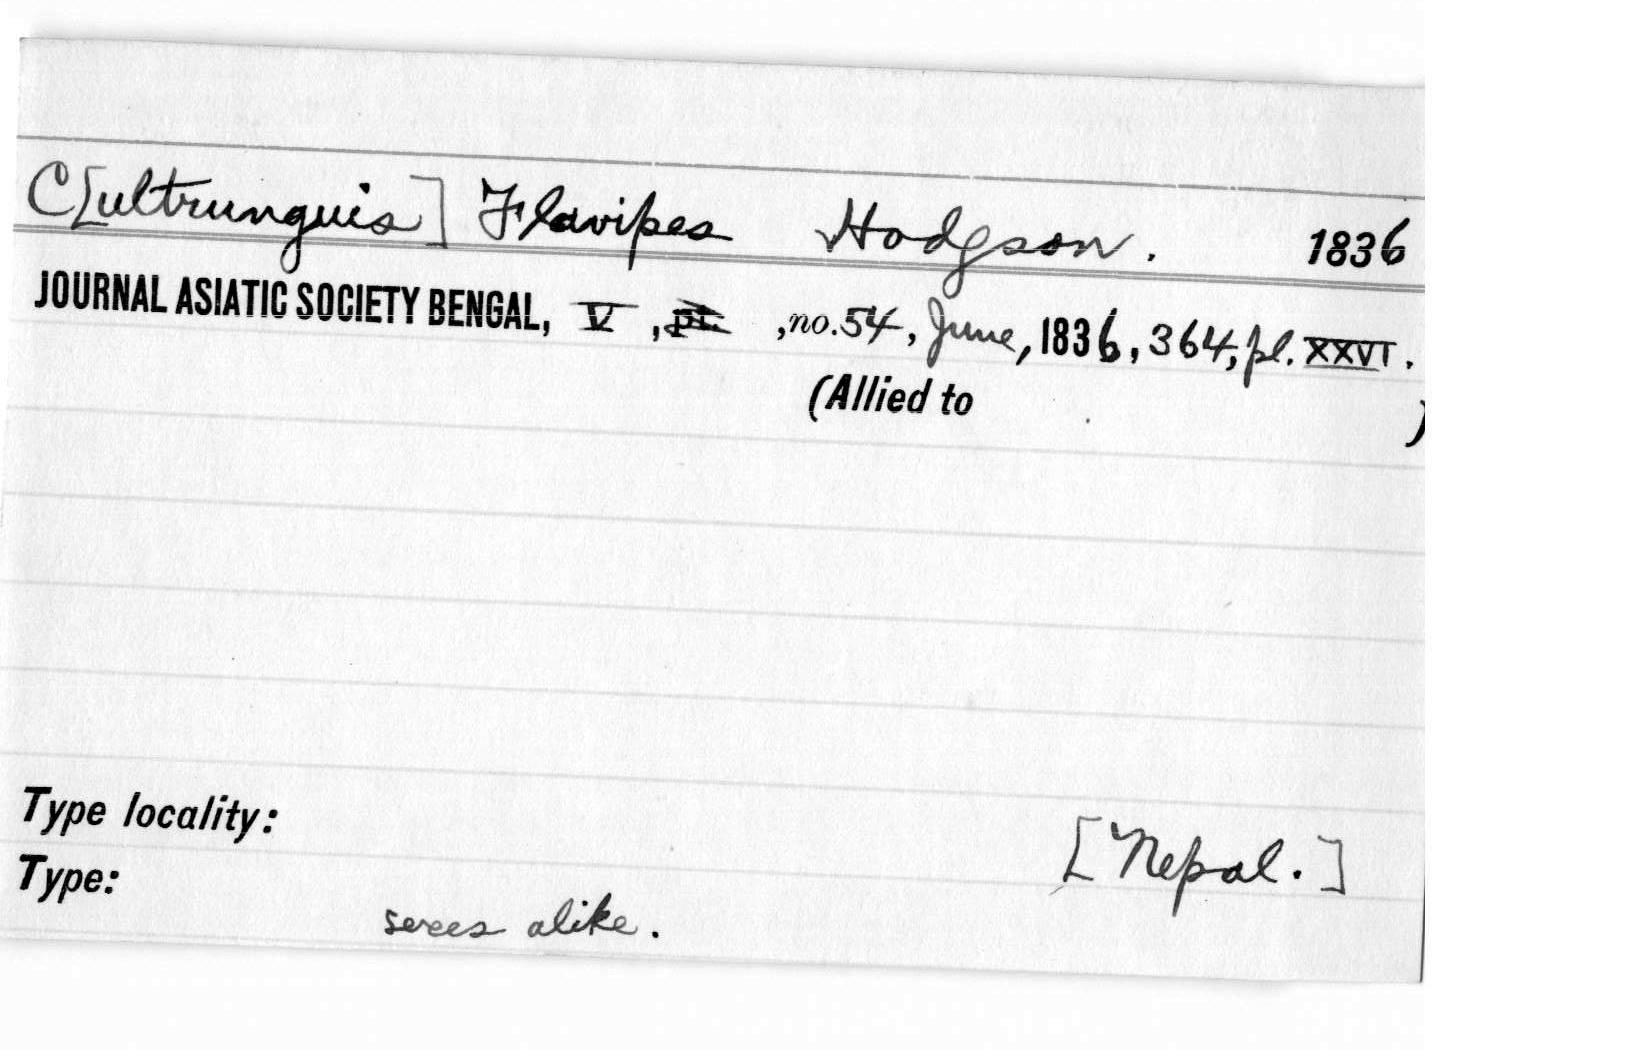 C[ultrunguis] Flavipes Hodgson. 1836
JOURNAL ASIATIC SOCIETY BENGAL, V, pt. , no. 54, June, 1836, 364, pl. XXVI.
(Allied to )
Type locality: [Nepal.]
Type:
sexes alike.